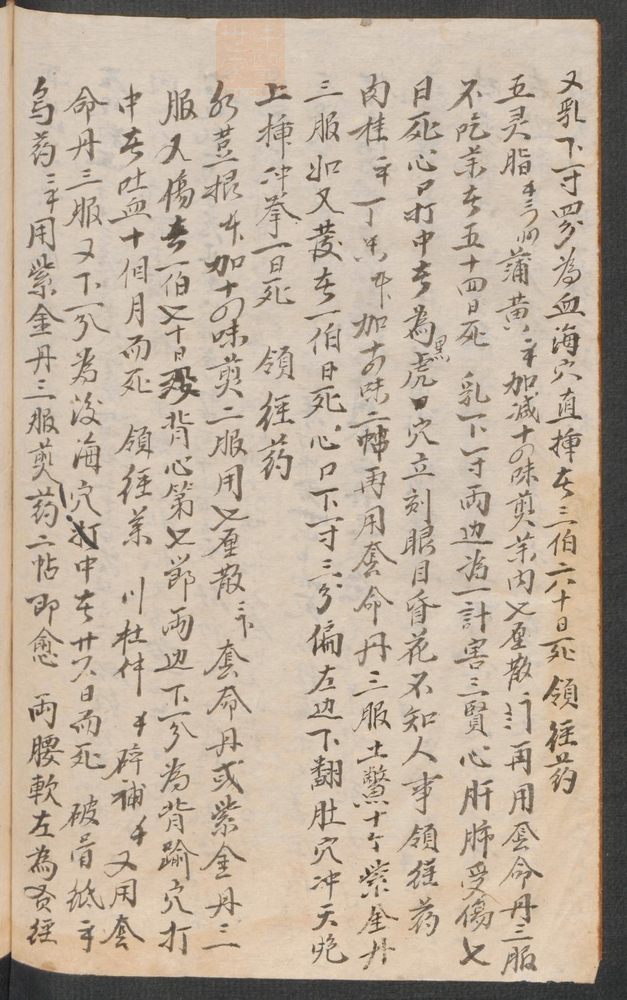 又乳下一寸四分為血海穴直揷者三伯六十日死領徑药
五灵脂 蒲黄 加减十四味煎茶内七厘散 再用套命丹三服
不吃茶者五十四日死 乳下一寸兩边為一計害三賢心肝肺受傷七
日死心口打中者為黑虎口穴立刻眼目昏花不知人事領徑药
肉桂 丁 加十四味二帖再用套命丹三服土鱉十个紫金丹
三服如又發者一伯日死心口下一寸三分偏左边下翻肚穴冲天炮
上揷冲拳一日死 領徑药
紅荳根 加十四味煎二服用七厘散 套命丹或紫金丹三
服又傷者一伯七十日 背心第七節兩边下一分為背踰穴打
中者吐血十個月而死 領徑茶 川杜仲 碎補 又用套
命丹三服又下一分為後海穴打中者廿六日而死 破骨紙
烏药 用紫金丹三服煎药二帖即愈 兩腰軟左為腎徑